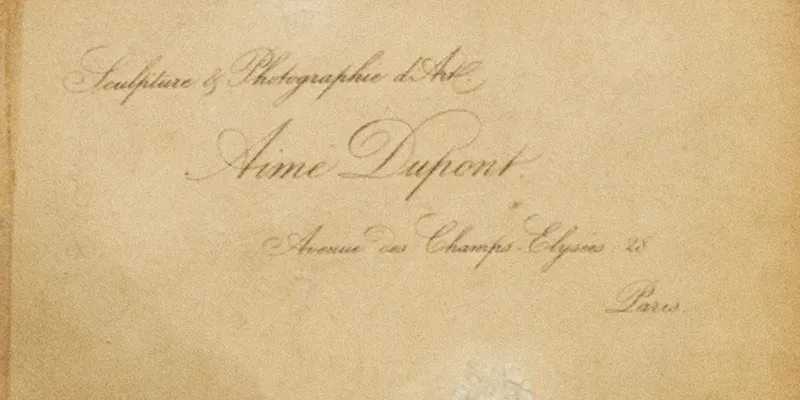 Sculpture & Photographie d'Art.
Aimé Dupont
Avenue des Champs-Elysées 28
Paris.